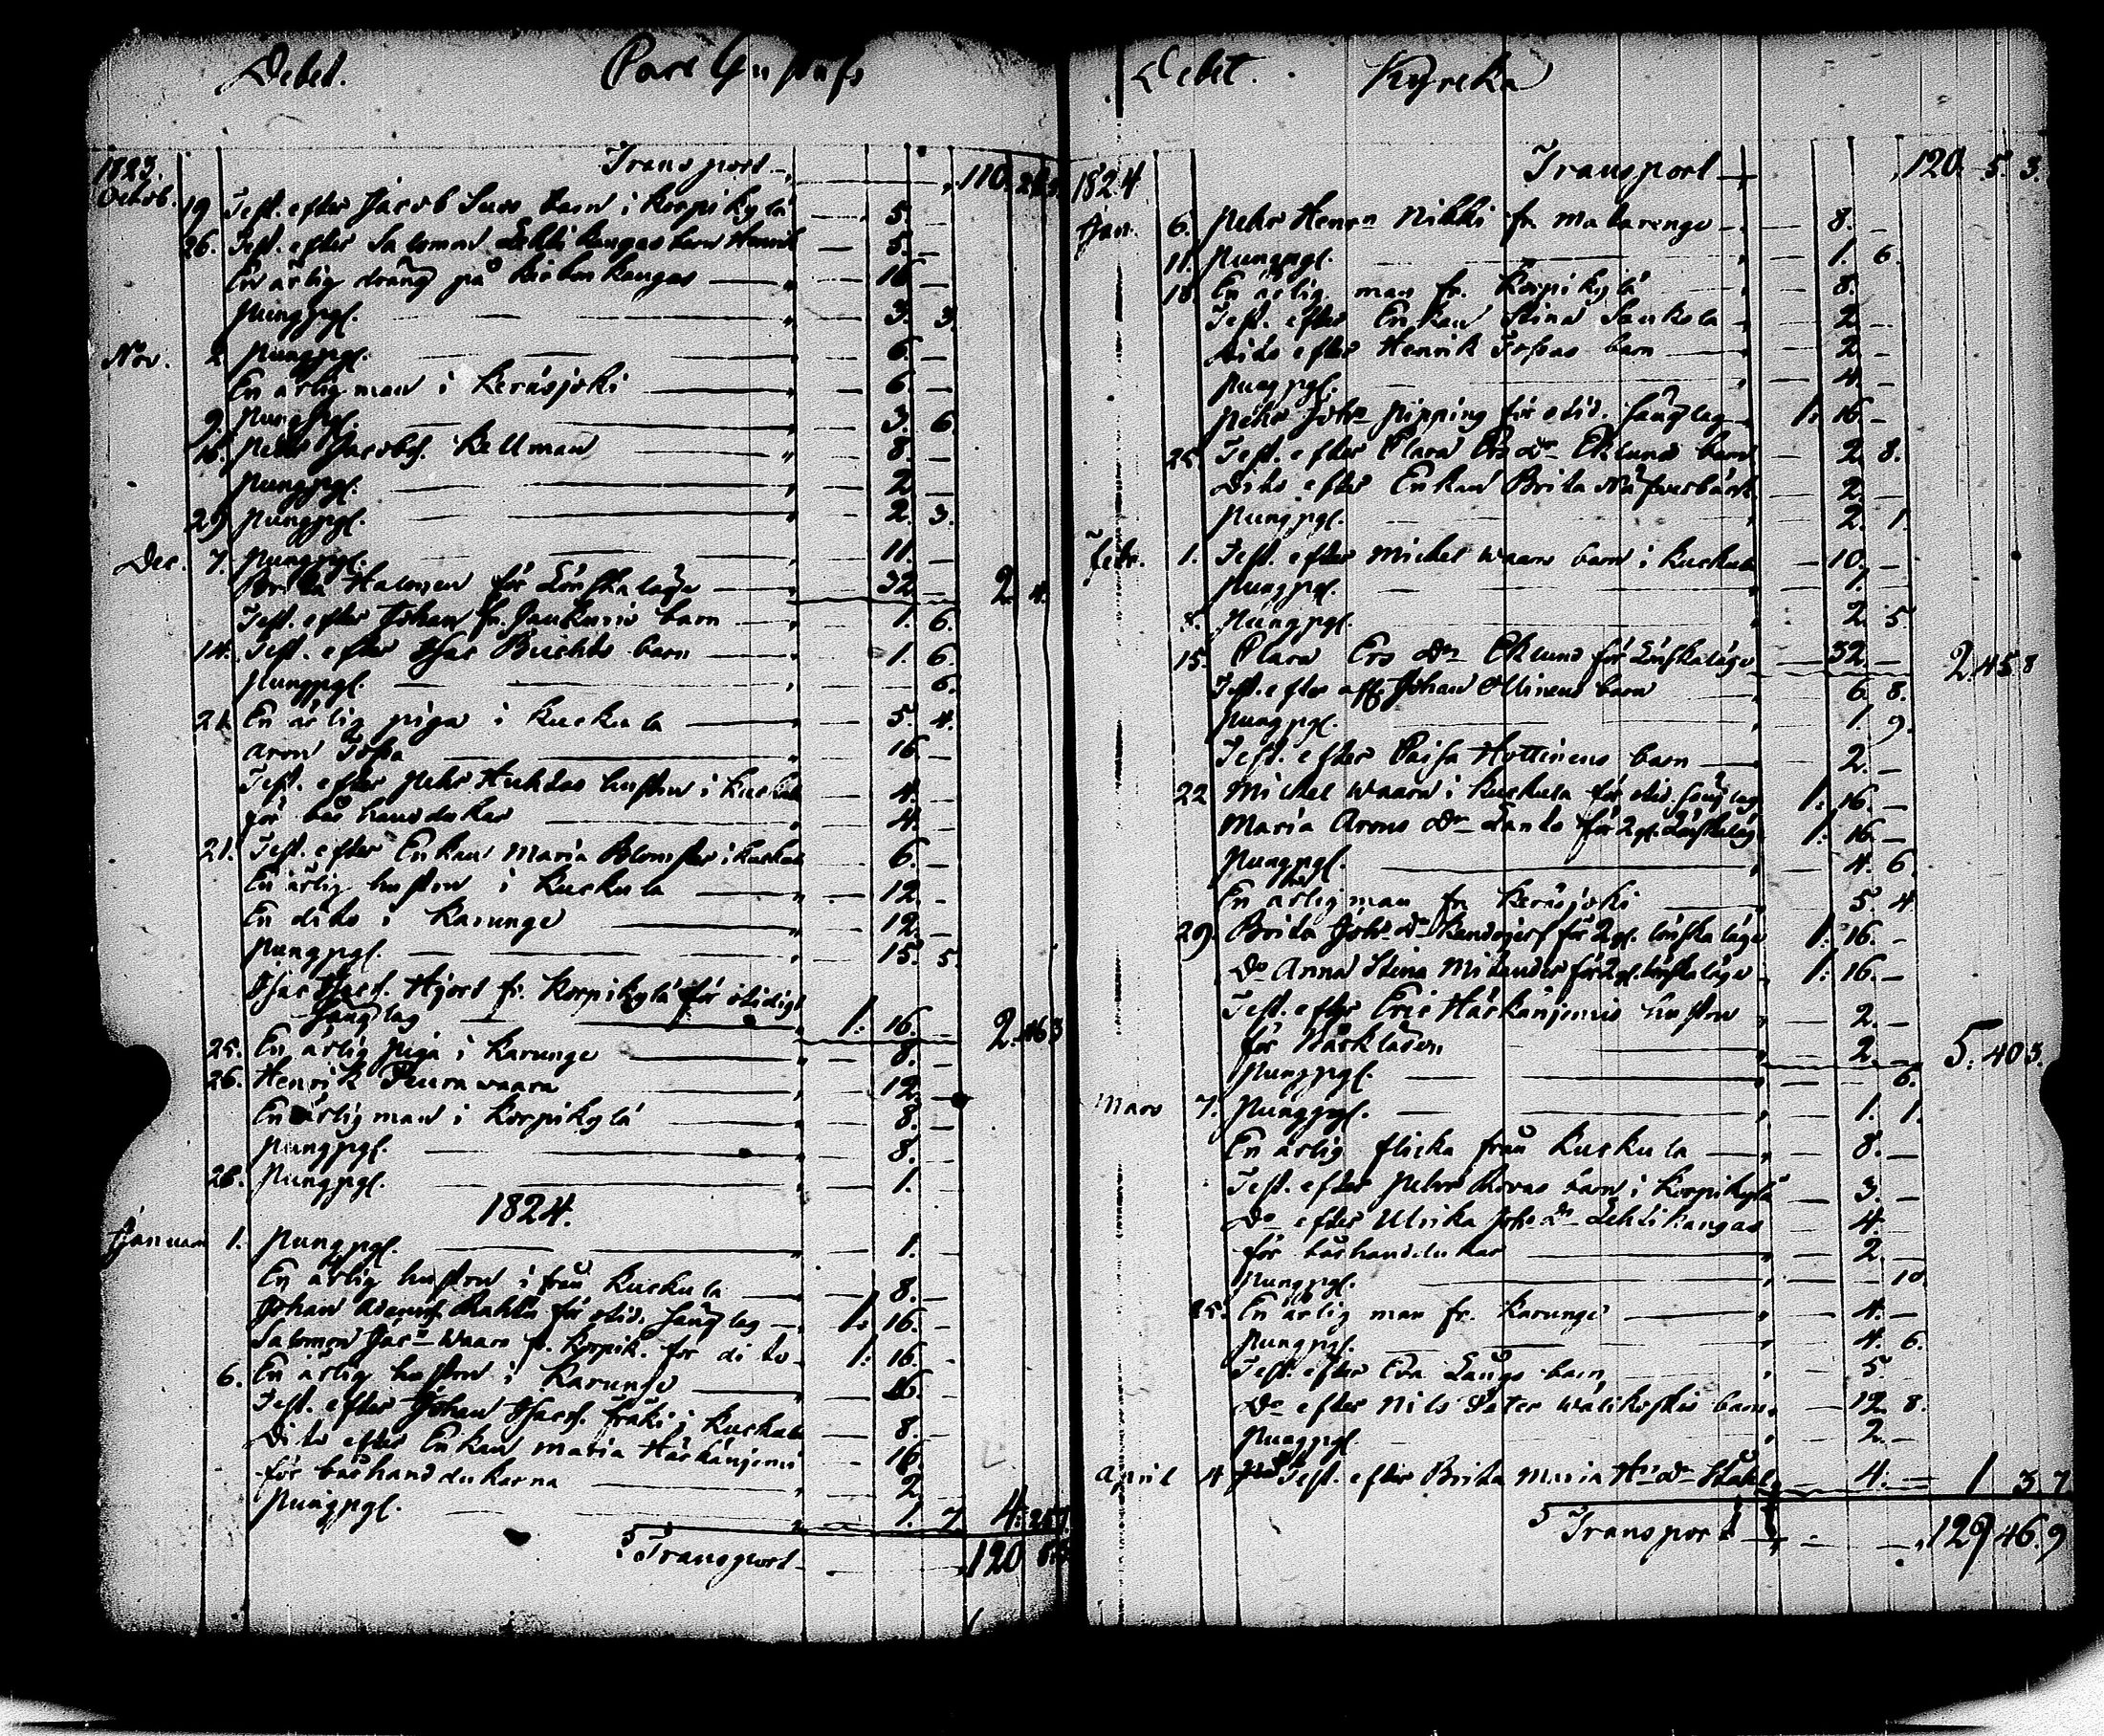 Debet. Carl Gustafs
1823. Transport 110.
Octob. 19 Test. efter Jacob Suos barn i Korpikylä 5. –
26. Test. efter Salomon Lehtikangas barn Henrik 5. –
En ärlig dräng på kangas 16 –
Pungpgr. 3. 3.
Nov. 2. Pungpgr. 6. –
En ärlig man i Keräsjoki 6. –
9. Pungpgr. 3. 6.
16. Pehr Jacobss. Kellman 8. –
Pungpgr. 2. –
29. Pungpgr. 2. 3.
Dec. 7. Pungpgr. 11. –
Brita Halonen för Lönskaläge 32. – 2. 4.
Test. efter Johan fr. barn 1. 6.
14. Test. efter Isac barn 1. 6.
Pungpgr. 6.
21. En ärlig piga i Kuckula 5. 4.
Aron Tossa 16. –
Test. efter Pehr Huhtas hustru i Kuckula 4. –
för bårhanddukar 4. –
21. Test. efter Enkan Maria Blomster i Kuckula 6. –
En ärlig hustru i Kuckula 12. –
En dito i Karunge 12. –
Pungpgr. 15. 5.
Isac Isacs. Hjort fr. Korpikylä för otidigt
Sänglag 1. 16. – 2. 46 3
25. En ärlig piga i Karunge 8. –
26. Henrik waara 12. –
En ärlig man i Korpikylä 8. –
Pungpgr. 8. –
28. Pungpgr. 1. –
1824.
Januari 1. Pungpgr. 1. –
En ärlig hustru i från Kuckula 8. –
Johan Adamss. för otid. Sänglag 1. 16. –
Salomon Jacs Waara fr. Korpik. för dito 1. 16. –
6. En ärlig hustru i Karunge 16 –
Test. efter Johan Isacss. i Kuckula 8. –
Dito efter Enkan Maria Härkänjemi 16. –
för bårhanddukarna 2. –
Pungpgr. 1. 7. 4.
Transport 120
Debet. Kyrcka
1824 Transport 120. 5. 3.
Jan. 6. Pehr Henrn Nikki fr. Matarenge 8. –
11. Pungpgr. 1. 6.
18. En ärlig man fr. Korpikylä 8. –
Test. efter Enkan Stina Saukola 2. –
Dito efter Henrik Tossas barn 2. –
Pungpgr. 4. –
Pehr Johsn Pipping för otid. Sänglag 1. 16. –
25. Test. efter Clara Ers dr Eklunds barn 2. 8.
Dito efter Enkan Brita 2. –
Pungpgr. 2. 1.
Febr. 1. Test. efter Michel Waaras barn i Kuckula 10. –
Pungpgr. 1. –
8. Pungpgr. 2. 5.
15. Clara Ers dr Eklund för Lönskaläge 32. – 2. 45 8
Test. efter afl. Johan Ollinens barn 6. 8.
Pungpgr. 1. 9.
Test. efter Caisa Hottinens barn 2. –
22 Michel Waara i Kuckula för otid. Sänglag 1. 16. –
Maria Arons dr Lanto för 2 gr. Lönskaläg. 1. 16. –
Pungpgr. 4. 6.
En ärlig man fr. Keräsjoki 5. 4
29. Brita Johs dr för 2 gr. Lönskaläge 1. 16. –
Do Anna Stina Milander för 2 gr. Lönskaläge 1. 16. –
Test. efter Eric Härkänjemis hustru 2. –
för Bårkläden 2. – 5. 40 3.
Pungpgr. 6.
Mars 7. Pungpgr. 1. 1.
En ärlig flicka från Kuckula 8. –
Test. efter Pehr Rovas barn i Korpikylä 3. –
Do efter Ulrika Johs dr Lehtikangas 4. –
för bårhanddukar 2. –
Pungpgr. 10.
25. En ärlig man fr. Karunge 4. –
Pungpgr. 4. 6.
Test. efter Eva Laugs barn 5. –
Do efter Nils Peter Wälikoskis barn 12. 8.
Pungpgr. 2. –
April 4 Test. efter Brita Maria Hs dr Ståhl 4. – 1 3 7
Transport 129 46. 9